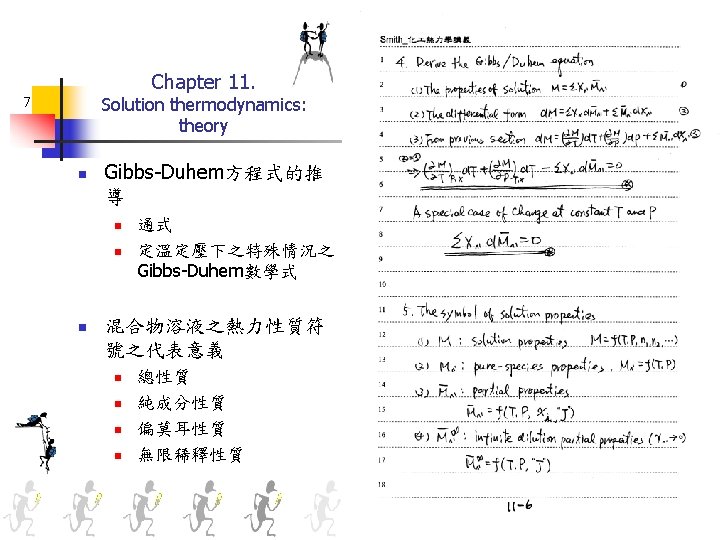 Chapter 11.
7
Solution thermodynamics:
theory
Gibbs-Duhem方程式的推
導
通式
定溫定壓下之特殊情況之
Gibbs-Duhem數學式
混合物溶液之熱力性質符
號之代表意義
總性質
純成分性質
偏莫耳性質
無限稀釋性質
Smith_化工熱力學講義
1 4. Derive the Gibbs/Duhem equation
2 (1) The properties of solution M = ΣXn M̄n ①
3 (2) The differential form dM = ΣXn dM̄n + ΣM̄n dXn ②
4 (3) From previous section dM = (∂M/∂T) dT + (∂M/∂P) dP + ΣM̄n dXn ③
5 ②=③
6 ⇒ (∂M/∂T)P,x dT + (∂M/∂P)T,x dP = ΣXn dM̄n ④
7 A special case of change at constant T and P
8 ΣXn dM̄n = 0
9
10
11 5. The symbol of solution properties
12 (1) M : solution properties M = f(T, P, n1, n2, ...)
13 (2) Mn : pure-species properties, Mn = f(T, P)
14 (3) M̄n : partial properties
15 M̄n = f(T, P, xj, "J")
16 (4) M̄n∞ : infinite dilution partial properties (x...→0)
17 M̄n∞ = f(T, P, "J")
18
11-6